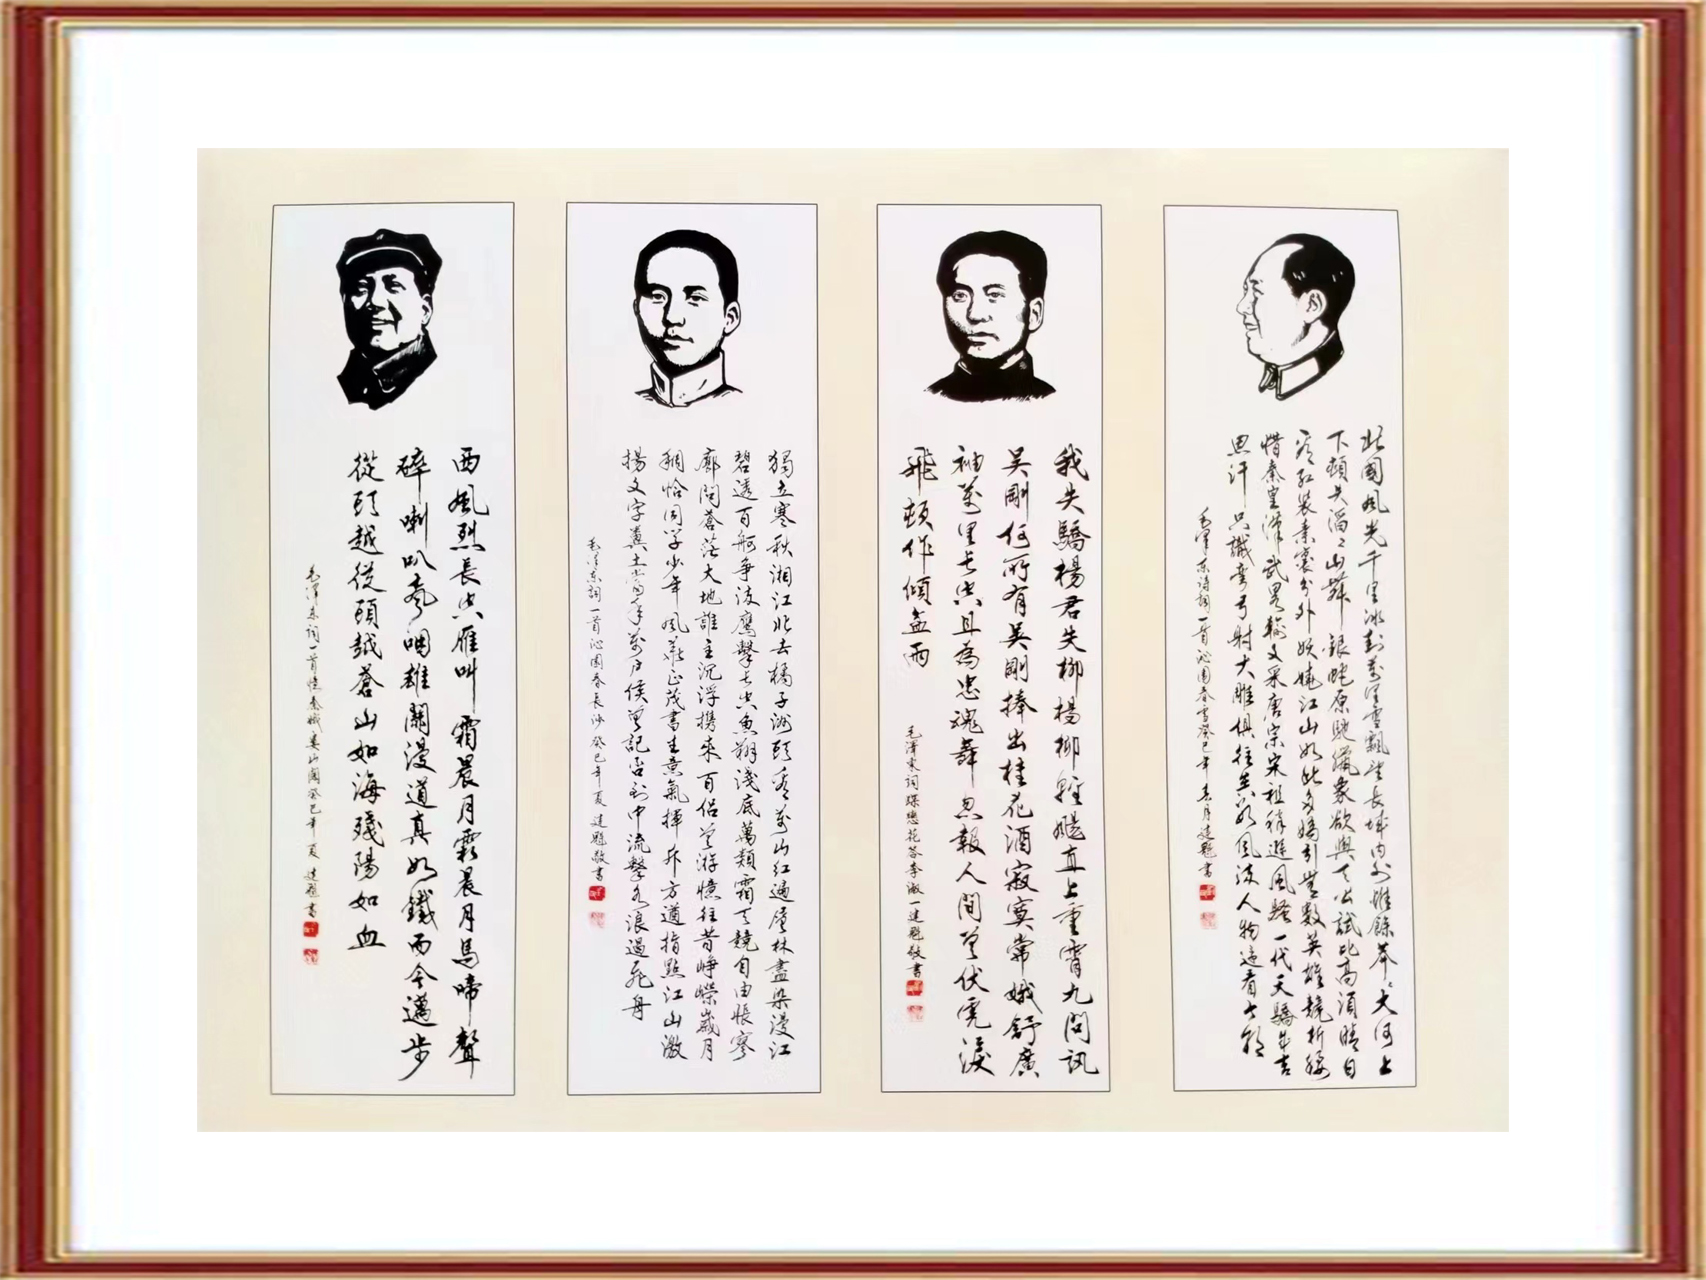 北國風光千里冰封萬里雪飄望長城内外惟餘莽〻大河上
下頓失滔〻山舞銀蛇原馳蠟象欲與天公試比高須晴日
看红裝素裹分外妖嬈江山如此多嬌引無數英雄競折腰
惜秦皇漢武畧輸文采唐宗宋祖稍遜風騷一代天驕成吉
思汗只識彎弓射大雕俱往矣數風流人物還看今朝
毛澤东诗詞一首沁園春雪癸巳年春月建題書
我失驕楊君失柳楊柳輕颺直上重霄九問訊
吴剛何所有吴剛捧出桂花酒寂寞常娥舒廣
袖萬里長空且為忠魂舞忽報人間曾伏虎淚
飛頓作傾盆雨
毛澤東词蝶戀花答李淑一建題敬書
獨立寒秋湘江北去橘子洲頭看萬山红遍層林盡染漫江
碧透百舸争流鹰擊長空魚翔淺底萬類霜天競自由悵寥
廓問蒼茫大地誰主沉浮攜來百侣曾游憶往昔崢嶸歲月
稠恰同学少年風華正茂書生意氣揮斥方遒指點江山激
揚文字糞土當年萬户侯曾記否到中流擊水浪遏飛舟
毛澤东詞一首沁園春長沙癸巳年夏建題敬書
西風烈長空雁叫霜晨月霜晨月馬啼聲
碎喇叭聲咽雄關漫道真如鐵而今邁步
從頭越從頭越蒼山如海殘陽如血
毛澤东词一首憶秦娥婁山關癸巳年夏建題書